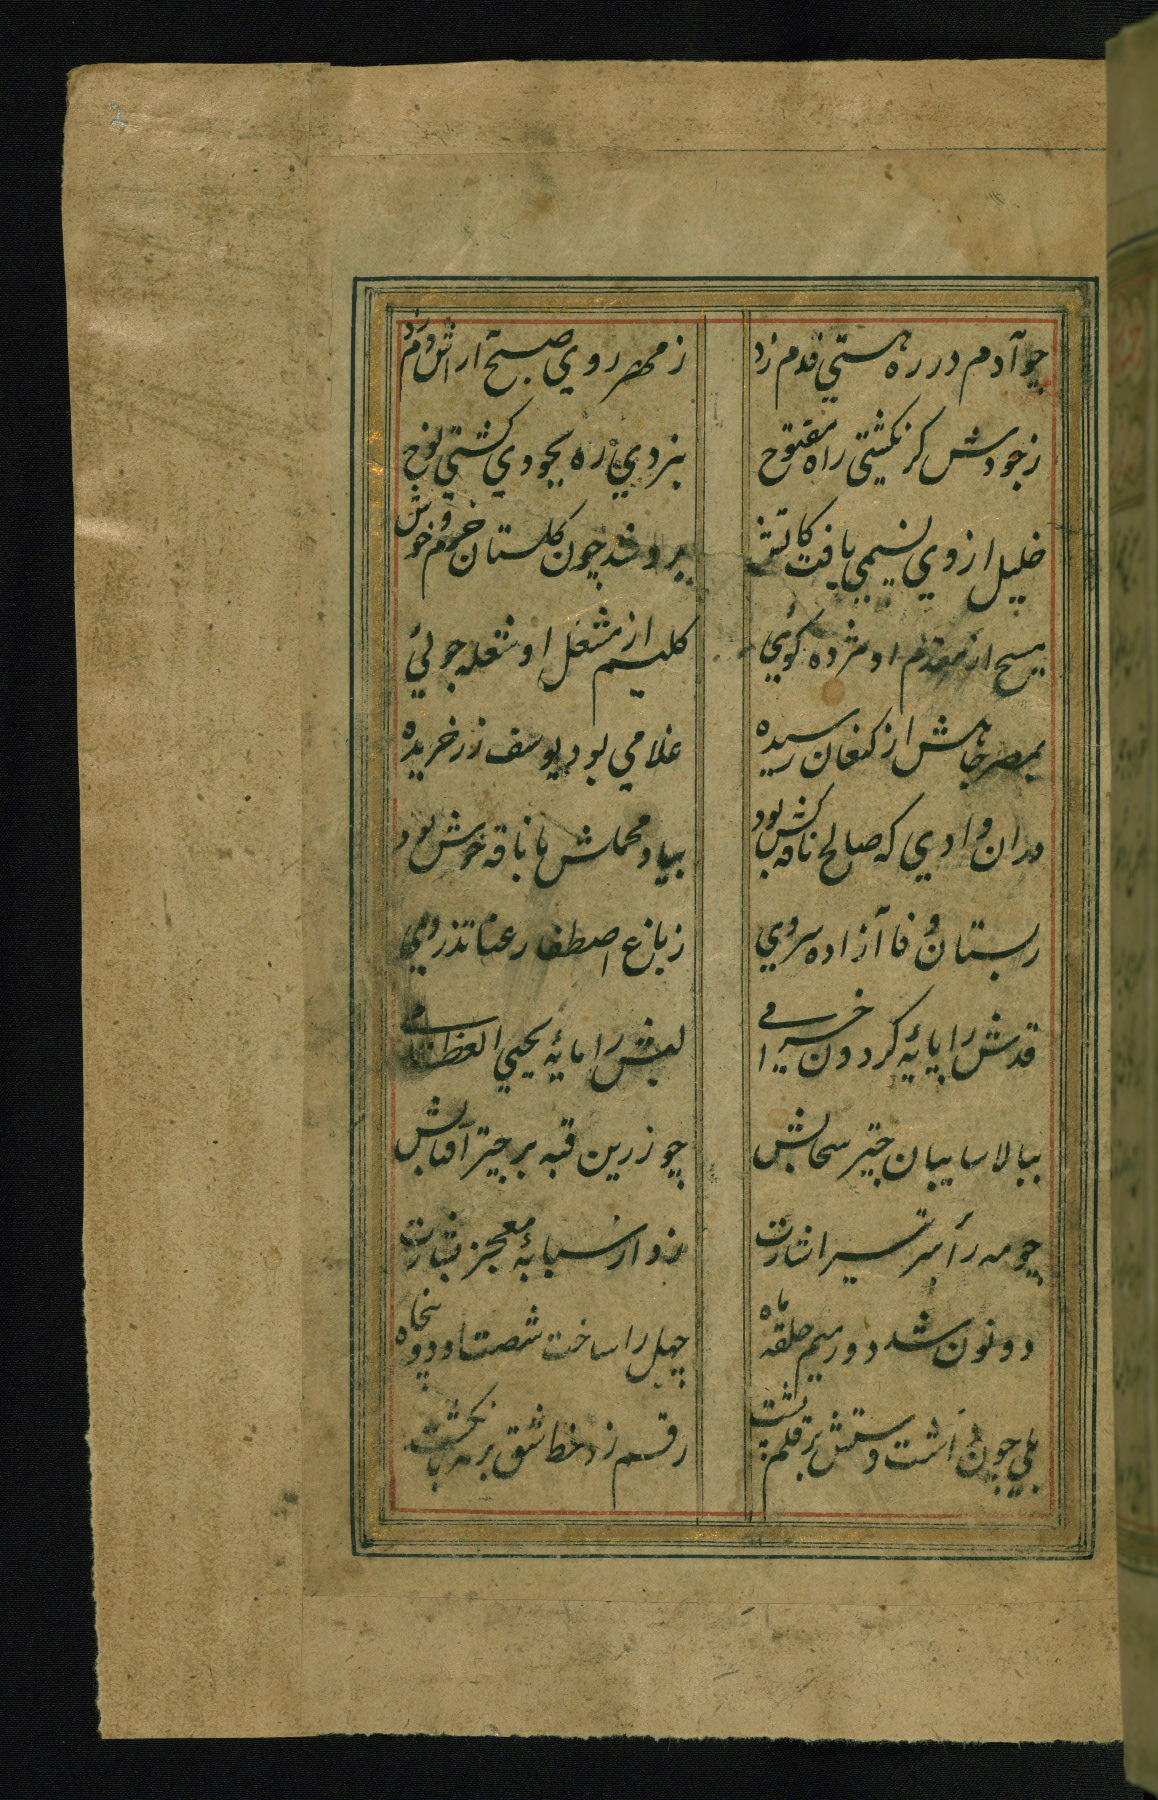 چو آدم در ره هستي قدم زد ز مهر روي صبح آراش دم زد
ز جودش کر نکشتي راه مفتوح نبردي ره بجودي کشتي نوح
خليل از وي نسيمي يافت کاتش برو شد چون کلستان خرم و خوش
مسيح از مقدم او مژده کوئي کليم از مشعل او شعله جوئي
بمصر جاهش از کنعان رسيده غلامي بود يوسف زر خريده
دران وادي که صالح ناقه کش بود بياد محملش با ناقه خوش بود
ز بستان وفا آزاده سروي ز باغ اصطفا رعنا تذروي
قدش را پايۀ کردون خرامي لبش را مايۀ يحيي العظامي
ببالا سايبان چتر سحابش چو زرين قبه بر چتر آفتابش
چو مه را بر سر تير اشارت زد از سبابۀ معجز بشارت
دو نون شد دور ميم حلقه ماه چهل را ساخت شصت او دو پنجاه
بلي چون داشت دستش بر قلم پشت رقم زد خط شق بر مه بانکشت